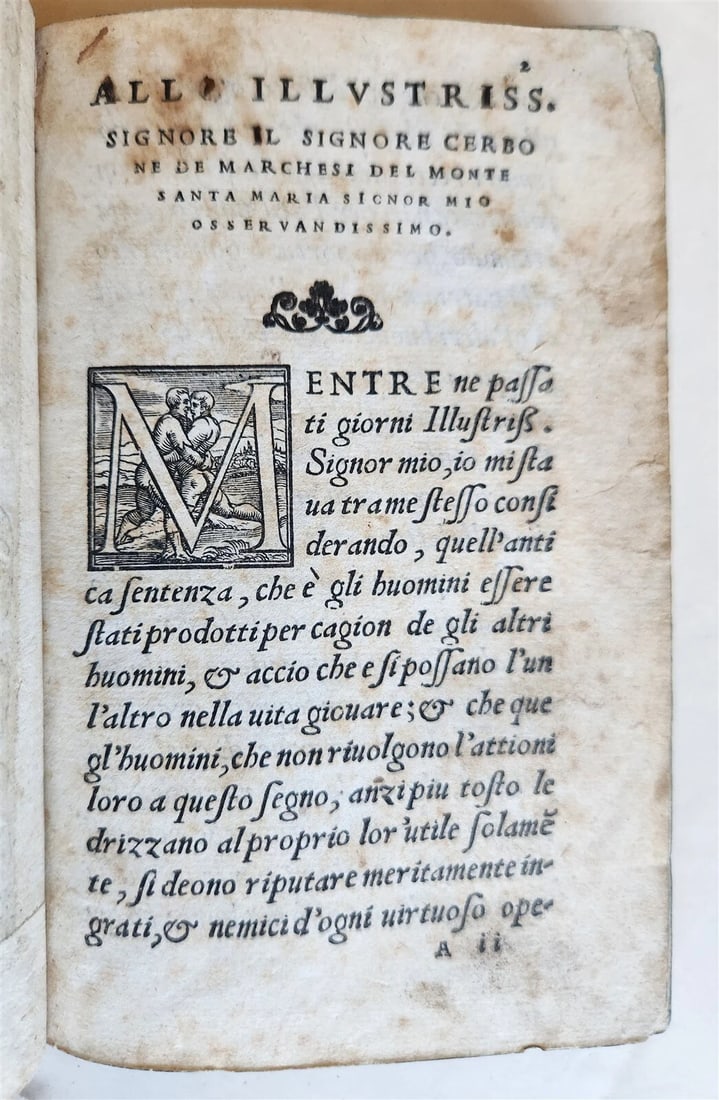 2
ALLO ILLVSTRISS.
SIGNORE IL SIGNORE CERBO
NE DE MARCHESI DEL MONTE
SANTA MARIA SIGNOR MIO
OSSERVANDISSIMO.
MENTRE ne paſſa
ti giorni Illuſtriſſ.
Signor mio, io mi ſta
ua tra me ſteſſo conſi
derando, quell'anti
ca ſentenza, che è gli huomini eſſere
ſtati prodotti per cagion de gli altri
huomini, & accio che e ſi poſſano l'un
l'altro nella uita giouare; & che que
gl'huomini, che non riuolgono l'attioni
loro a queſto ſegno, anzi piu toſto le
drizzano al proprio lor utile ſolamẽ
te, ſi deono riputare meritamente in-
grati, & nemici d'ogni uirtuoſo ope-
A ii